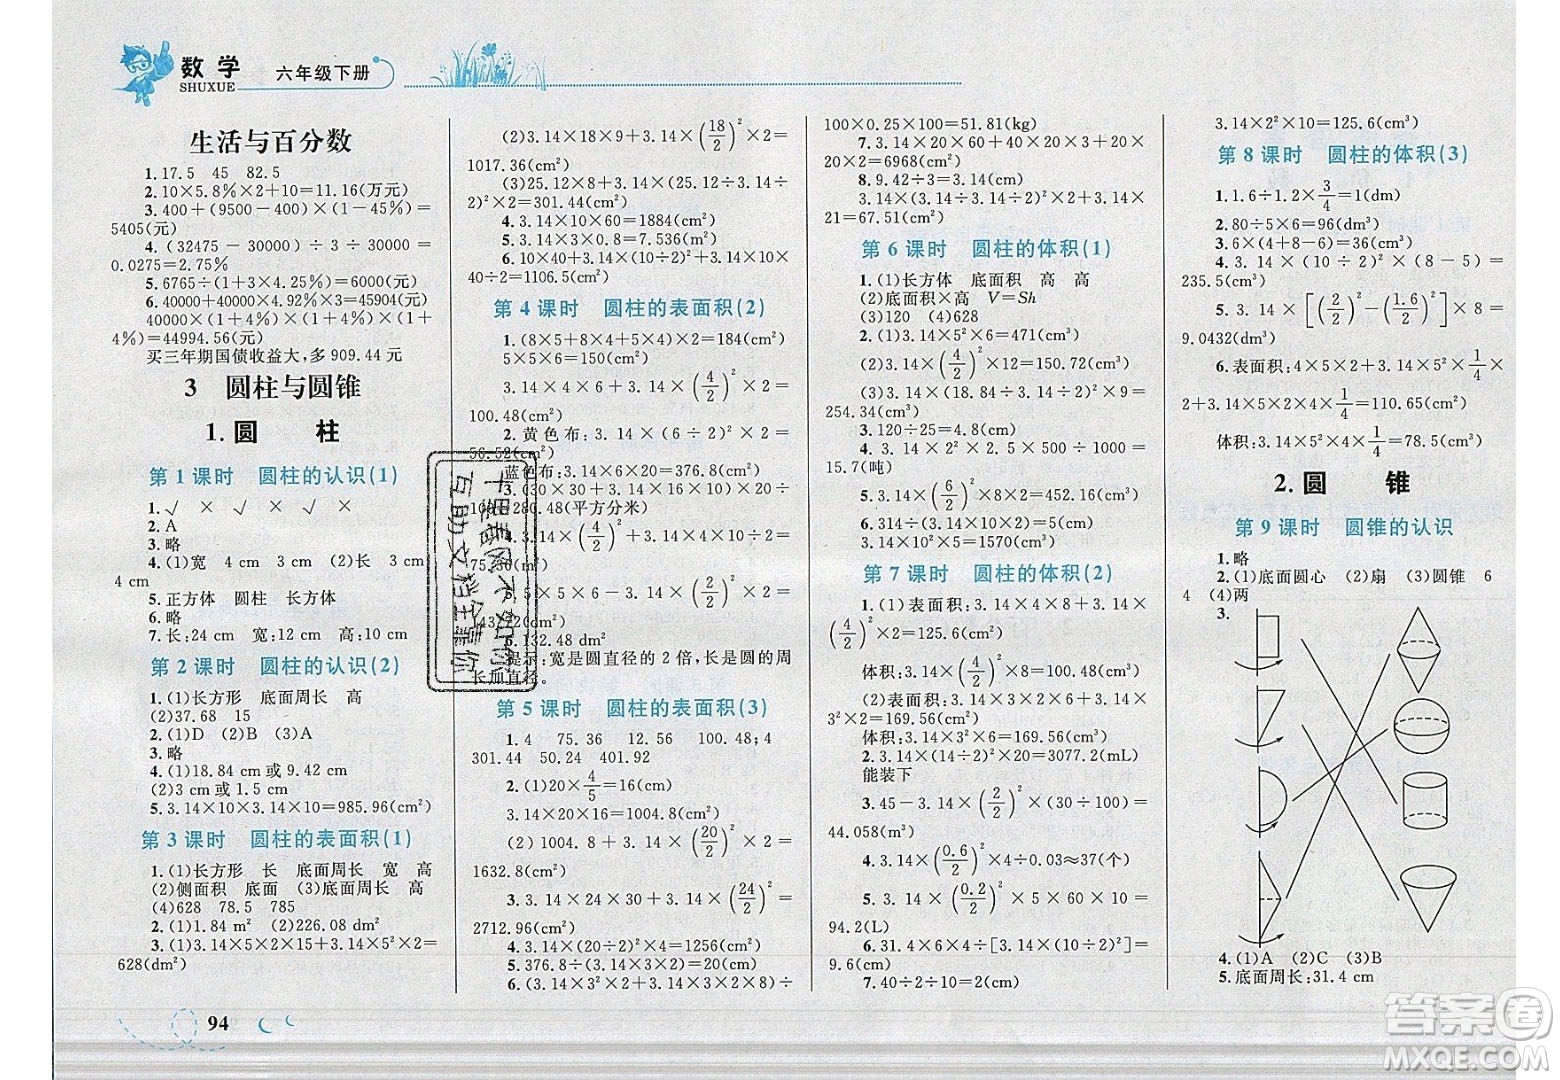 数学
SHUXUE
六年级下册
生活与百分数
1. 17.5 45 82.5
2. 10×5.8%×2+10=11.16(万元)
3. 400+(9500-400)×(1-45%)=
5405(元)
4. (32475-30000)÷3÷30000=
0.0275=2.75%
5. 6765÷(1+3×4.25%)=6000(元)
6. 40000+40000×4.92%×3=45904(元)
40000×(1+4%)×(1+4%)×(1+
4%)=44994.56(元)
买三年期国债收益大,多 909.44 元
3 圆柱与圆锥
1. 圆 柱
第 1 课时 圆柱的认识(1)
1. √ × √ × × √
2. A
3. 略
4. (1)宽 4 cm 3 cm (2)长 3 cm
4 cm
5. 正方体 圆柱 长方体
6. 略
7. 长:24 cm 宽:12 cm 高:10 cm
第 2 课时 圆柱的认识(2)
1. (1)长方形 底面周长 高
(2)37.68 15
2. (1)D (2)B (3)A
3. 略
4. (1)18.84 cm 或 9.42 cm
(2)3 cm 或 1.5 cm
5. 3.14×10×10×π=985.96(cm²)
第 3 课时 圆柱的表面积(1)
1. (1)长方形 长 底面周长 宽 高
(2)侧面积 底面 (3)底面周长 高
(4)628 78.5 785
2. (1)1.84 m² (2)226.08 dm²
3. (1)3.14×5×2×15+3.14×5²×2=
628(dm²)
(2)3.14×18×9+3.14×(18/2)²×2=
1017.36(cm²)
(3)25.12×8+3.14×(25.12÷3.14÷
2)²×2=301.44(cm²)
4. 3.14×10×60=1884(cm²)
5. 3.14×3×0.8=7.536(m²)
6. 10×40+3.14×(10÷2)²+3.14×10×
40÷2=1106.5(cm²)
第 4 课时 圆柱的表面积(2)
1. (8×5+8×4+5×4)×2=184(cm²)
5×5×6=150(cm²)
3.14×4×6+3.14×(4/2)²×2=
100.48(cm²)
2. 黄色布:3.14×(6/2)²×2=
56.52(cm²)
蓝色布:3.14×6×20=376.8(cm²)
3. (30×30+30×20+20×20)×2
280.48(平方分米)
4. 3.14×(4/2)²+3.14×4×5=
75.36(m²)
6. 132.48 dm²
提示:宽是圆直径的 2 倍,长是圆的周
长加直径。
第 5 课时 圆柱的表面积(3)
1. 4 75.36 12.56 100.48;4
301.44 50.24 401.92
2. (1)20×4/5=16(cm)
3.14×20×16=1004.8(cm²)
(2)1004.8+3.14×(20/2)²×2=
1632.8(cm²)
3. 3.14×24×30+3.14×(24/2)²=
2712.96(cm²)
4. 3.14×(20÷2)²×4=1256(cm²)
5. 376.8÷(3.14×3×2)=20(cm)
6. (3.14×3²×2+3.14×3×2×8)÷
100×0.25×100=51.81(kg)
7. 3.14×20×60+40×40×6-3.14×(
20÷2)²×2=6968(cm²)
8. 9.42÷3=3.14(cm)
3.14×(3.14÷3.14÷2)²×2+3.14×
21=67.51(cm²)
第 6 课时 圆柱的体积(1)
1. (1)长方体 底面积 高 高
(2)底面积×高 V=Sh
(3)120 (4)628
2. (1)3.14×5²×6=471(cm³)
(2)3.14×(4/2)²×12=150.72(cm³)
(3)3.14×(18.84÷3.14÷2)²×9=
254.34(cm³)
3. 120÷25=4.8(cm)
4. 3.14×(4/2)²×2.5×500÷1000=
15.7(吨)
5. 3.14×(6/2)²×16=452.16(cm³)
6. 314÷(3.14×10÷2)=20(cm)
3.14×10²×5=1570(cm³)
第 7 课时 圆柱的体积(2)
1. (1)表面积:3.14×4×8+3.14×
(4/2)²×2=125.6(m²)
体积:3.14×(4/2)²×8=100.48(m³)
(2)表面积:3.14×3×2×6+3.14×
3²×2=169.56(cm²)
体积:3.14×3²×6=169.56(cm³)
2. 3.14×(14÷2)²×20=3077.2(mL)
能装下
3. 45-3.14×(2/2)²×(30÷100)=
44.058(m³)
4. 3.14×(0.6/2)²×4÷0.03≈37(个)
5. 3.14×(0.2/2)²×5×60×10=
94.2(L)
6. 31.4×6×4÷[3.14×(10÷2)²]=
9.6(cm)
7. 40÷2÷2=10(cm)
3.14×2²×10=125.6(cm³)
第 8 课时 圆柱的体积(3)
1. 1.6÷1.2×3/4=1(dm)
2. 80÷5×6=96(dm³)
3. 6×(4+8)÷2=36(cm³)
4. 3.14×(10÷2)²×(8-5)=
235.5(cm³)
5. 3.14×[(2/2)²-(1.6/2)²]×8=
9.0432(dm³)
6. 表面积:4×5×2+3.14×5²×1/4×
2+3.14×5×2×4×1/4=110.65(cm²)
体积:3.14×5²×4×1/4=78.5(cm³)
2. 圆 锥
第 9 课时 圆锥的认识
1. 略
2. (1)底面圆心 (2)扇 (3)圆锥 6
4 (4)两
3.
4. (1)A (2)C (3)B
5. 底面周长:31.4 cm
94
十里春风不如你
百助文档全靠你
答案圈
MXQE.COM